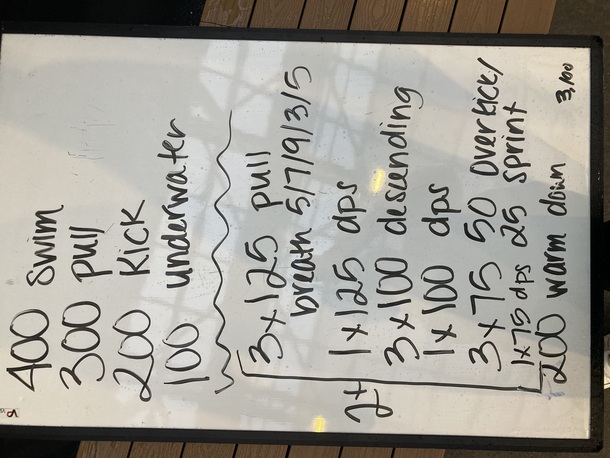 400 Swim
300 pull
200 Kick
100 underwater
3x125 pull
breath 5/7/9/3/5
1x125 dps
3x100 descending
1x100 dps
3x75 50 overkick/
25 sprint
1x75 dps
2x
200 warm down
3,100